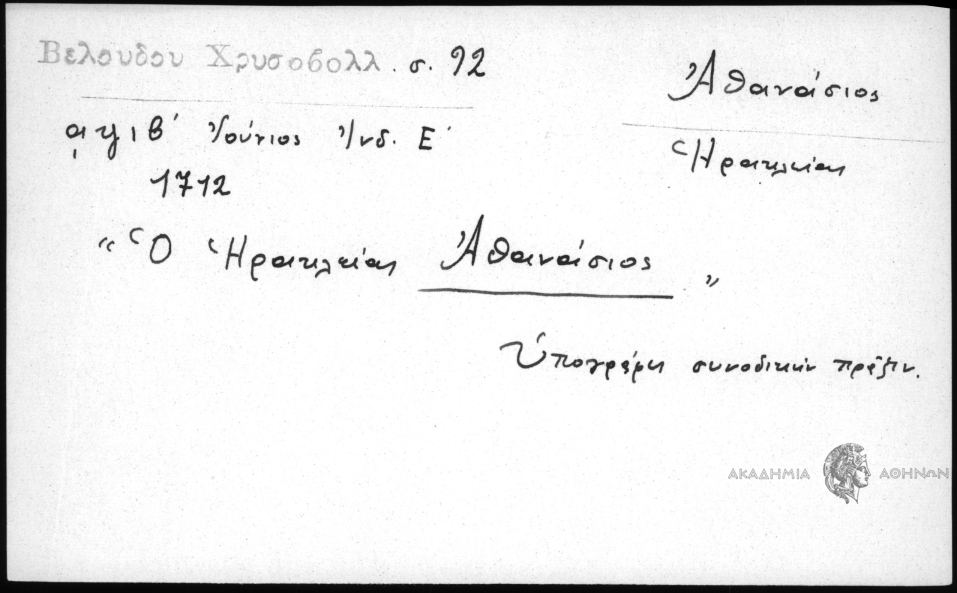 Βελουδου Χρυσοβολλ. σ. 92
Ἀθανάσιος
Ἡρακλείας
͵αψιβ΄ Ἰούνιος Ἰνδ. Ε΄
1712
“ Ὁ Ἡρακλείας Ἀθανάσιος ”
Ὑπογράφει συνοδικὴν πρᾶξιν.
ΑΚΑΔΗΜΙΑ ΑΘΗΝΩΝ